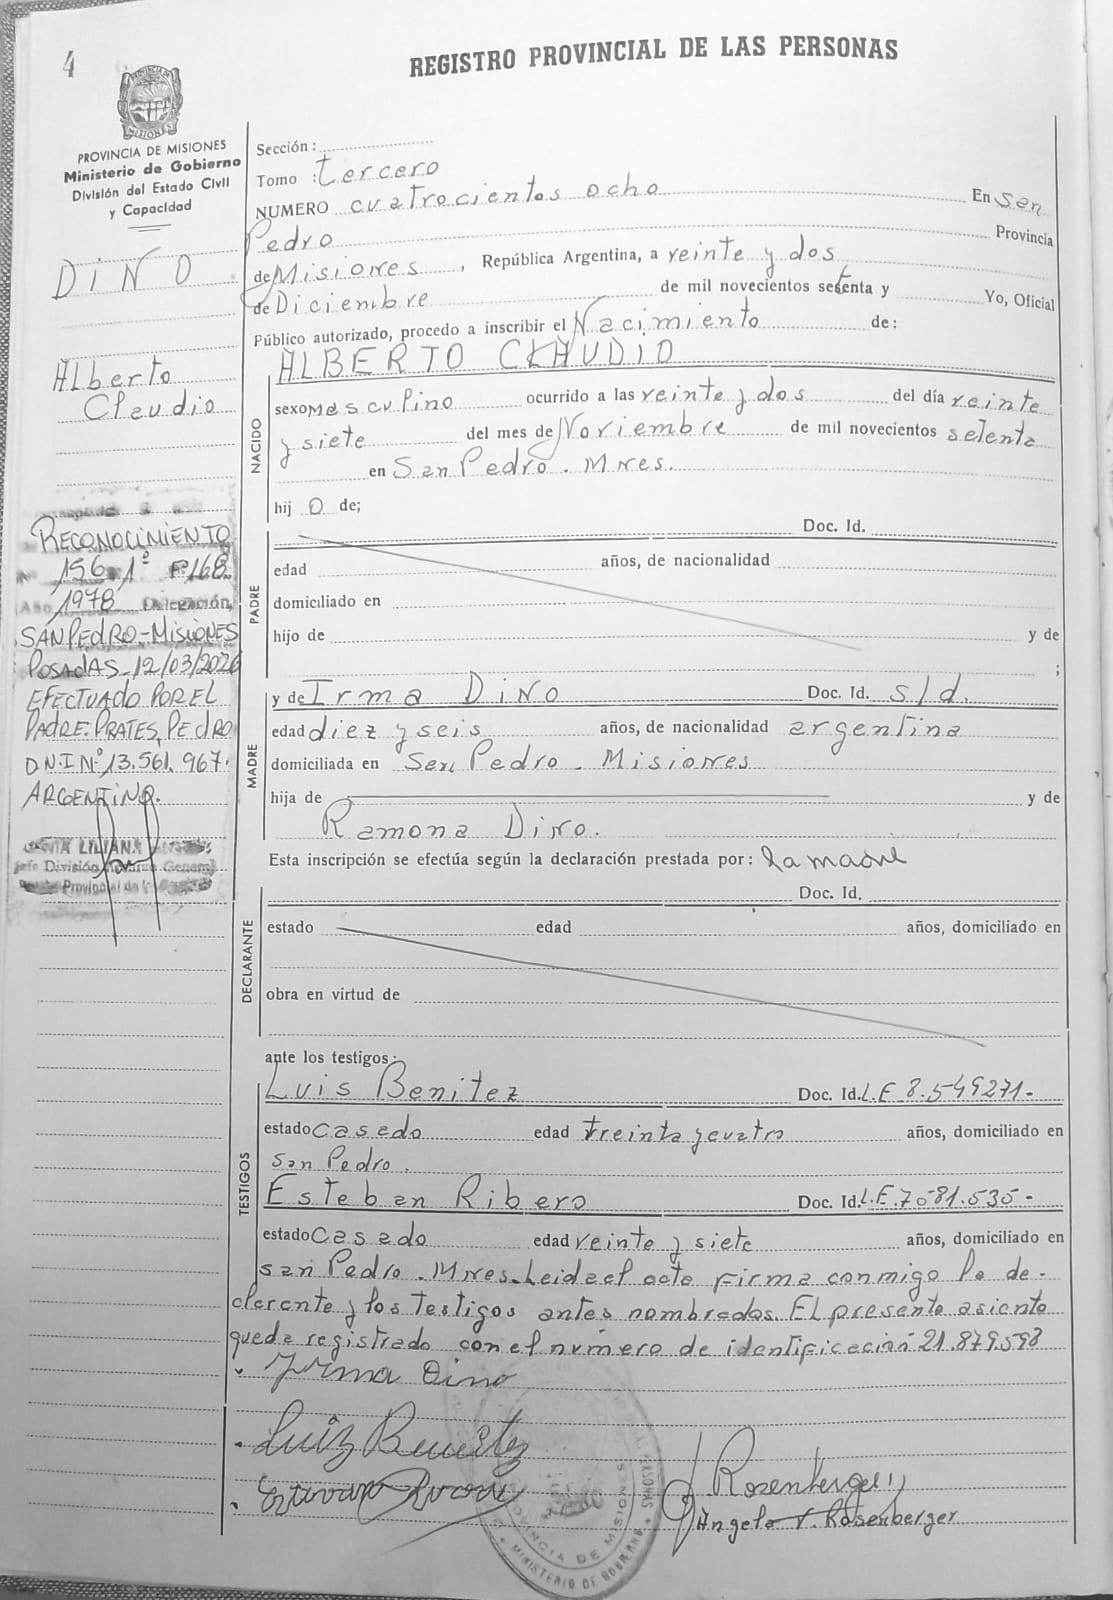 4
REGISTRO PROVINCIAL DE LAS PERSONAS
PROVINCIA DE MISIONES
Ministerio de Gobierno
División del Estado Civil
y Capacidad
DINO
Alberto
Claudio
RECONOCIMIENTO
Nº 156 1º Fº 168
Año 1978 Delegación
SAN PEDRO - MISIONES
POSADAS - 12/03/2026
EFECTUADO POR EL
PADRE: PRATES, PEDRO
D.N.I Nº 13.561.967.
ARGENTINO.
LILIANA
Jefe División General
Provincial de
Sección:
Tomo : tercero
NUMERO cuatrocientos ocho En San
Pedro Provincia
de Misiones, República Argentina, a veinte y dos
de Diciembre de mil novecientos setenta y Yo, Oficial
Público autorizado, procedo a inscribir el Nacimiento de:
ALBERTO CLAUDIO
NACIDO
sexo masculino ocurrido a las veinte y dos del día veinte
y siete del mes de Noviembre de mil novecientos setenta
en San Pedro. Mnes.
hij o de;
Doc. Id.
PADRE
edad años, de nacionalidad
domiciliado en
hijo de y de
;
MADRE
y de Irma DINO Doc. Id. s/d.
edad diez y seis años, de nacionalidad argentina
domiciliada en San Pedro. Misiones
hija de y de
Ramona Dino.
Esta inscripción se efectúa según la declaración prestada por: la madre
DECLARANTE
Doc. Id.
estado edad años, domiciliado en
obra en virtud de
ante los testigos:
TESTIGOS
Luis Benitez Doc. Id. L.E 8.549271.-
estado casado edad treinta y cuatro años, domiciliado en
San Pedro.
Esteban Ribero Doc. Id. L.E. 7.081.535.-
estado casado edad veinte y siete años, domiciliado en
San Pedro. Mnes. Leida el acta firma conmigo la de-
clarante y los testigos antes nombrados. El presente asiento
queda registrado con el número de identificación 21.879.598
Irma Dino
Luiz Benitez
Rosenberger
Angela V. Rosenberger
PROVINCIA DE MISIONES
MINISTERIO DE GOBIERNO